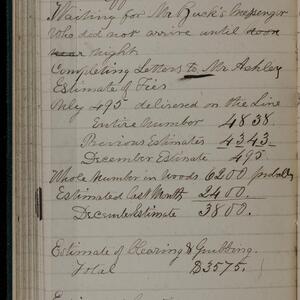 Waiting for Mr Buck's Messenger
who did not arrive until
near night
Completing Letters to Mr Ashley
Estimate of Ties
Only 495 delivered on the Line
Entire Number 4838
Previous Estimates 4343
December Estimate 495
Whole Number in Woods 6200 probably
Estimated Last Month 2400.
Dicember Estimate 3800.
Estimate of Clearing & Grubbing.
Total $3575.